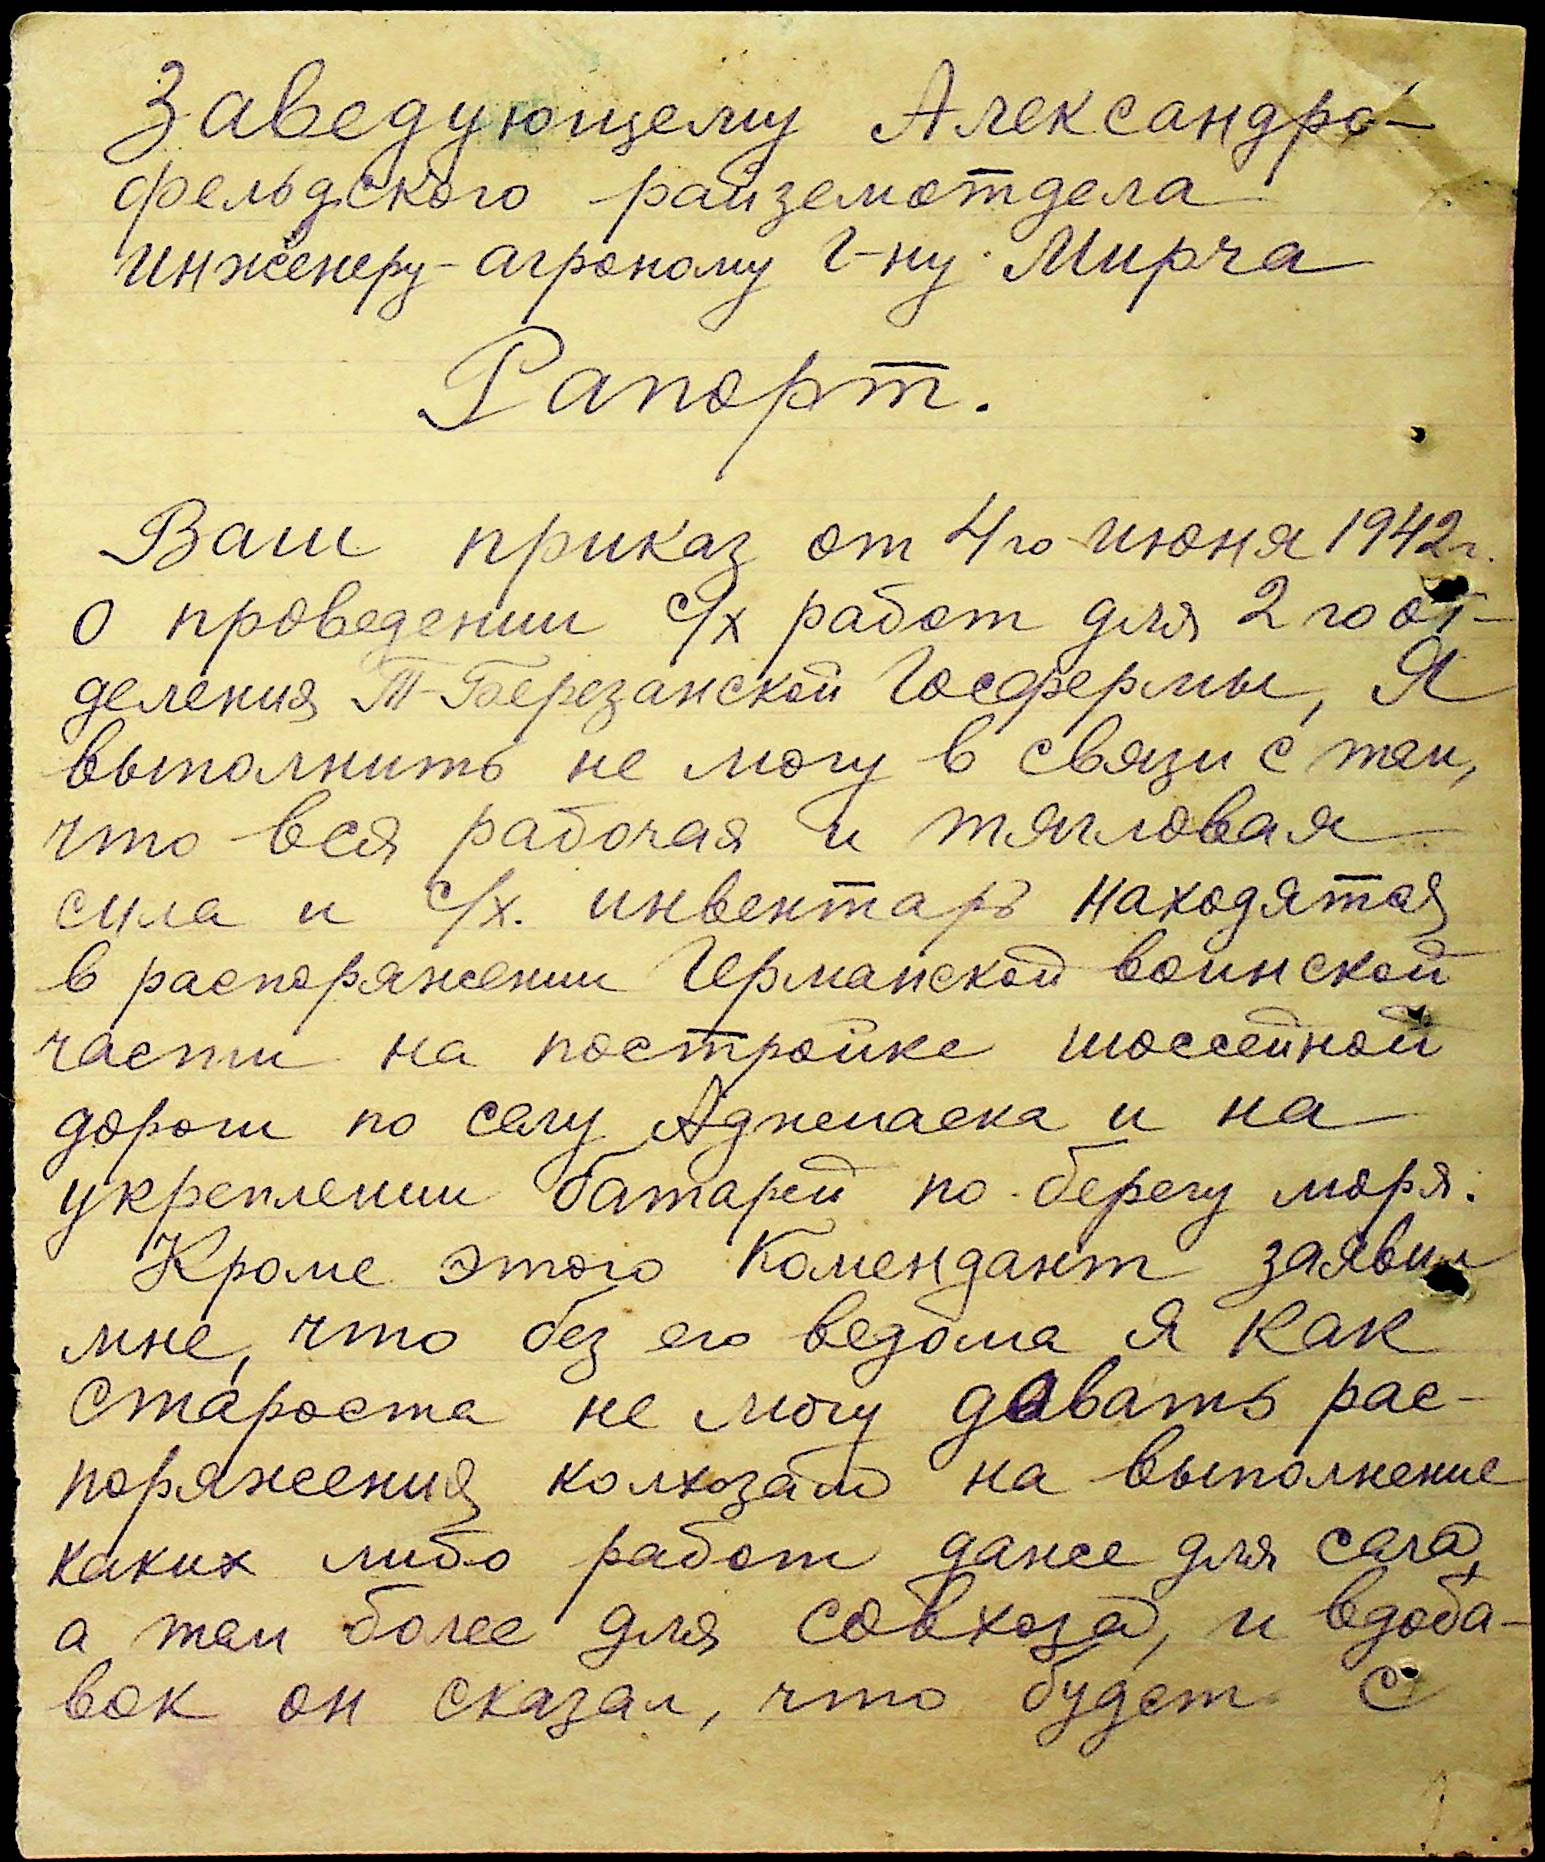 Заведующему Александро-
фельдского райземотдела
инженеру-агроному г-ну Мирча
Рапорт.
Ваш приказ от 4го июня 1942г.
о проведении с/х работ для 2 го от-
деления Т-Березанской Госфермы, Я
выполнить не могу в связи с тем,
что вся рабочая и тягловая
сила и с/х. инвентарь находятся
в распоряжении Германской воинской
части на постройке шоссейной
дороги по селу Аджиаска и на
укреплении батарей по берегу моря.
Кроме этого Комендант заявил
мне, что без его ведома я как
староста не могу давать рас-
поряжения колхозам на выполнение
каких либо работ даже для села,
а тем более для совхоза, и вдоба-
вок он сказал, что будет с